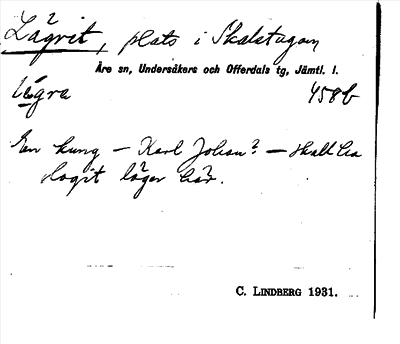 Lägret, plats i Skalstugan
Åre sn, Undersåkers och Offerdals tg, Jämtl. l.
458b
En kung – Karl Johan? – skall ha
slagit läger här.
C. LINDBERG 1931.